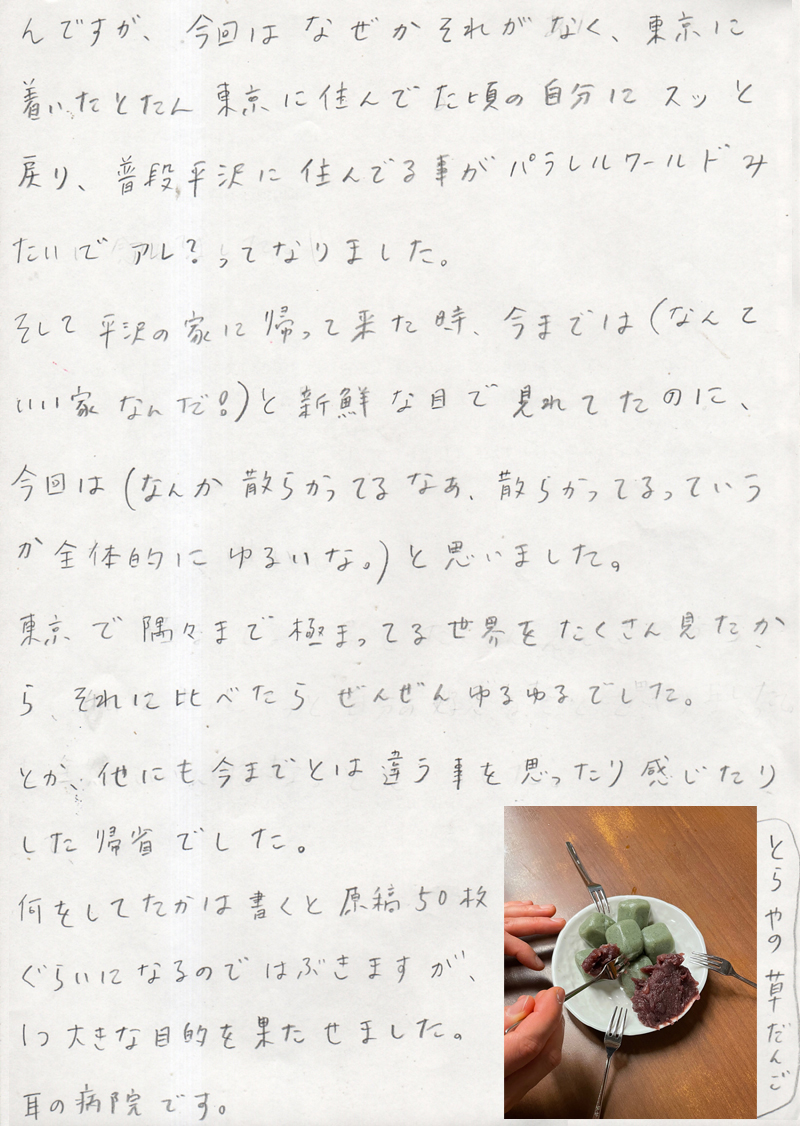 んですが、今回はなぜかそれがなく、東京に
着いたとたん東京に住んでた頃の自分にスッと
戻り、普段平沢に住んでる事がパラレルワールドみ
たいでアレ?ってなりました。
そして平沢の家に帰って来た時、今までは(なんて
いい家なんだ!)と新鮮な目で見れてたのに、
今回は(なんか散らかってるなあ、散らかってるっていう
か全体的にゆるいな。)と思いました。
東京で隅々まで極まってる世界をたくさん見たか
ら、それに比べたらぜんぜんゆるゆるでした。
とか、他にも今までとは違う事を思ったり感じたり
した帰省でした。
何をしてたかは書くと原稿50枚
ぐらいになるのではぶきますが、
1つ大きな目的を果たせました。
耳の病院です。
とらやの草だんご